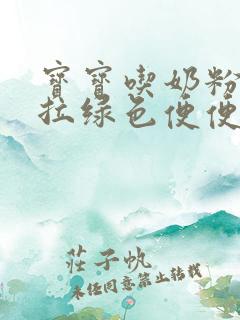 寶寶喫奶粉
拉绿色便便
莊子帆
未经同意禁止转载